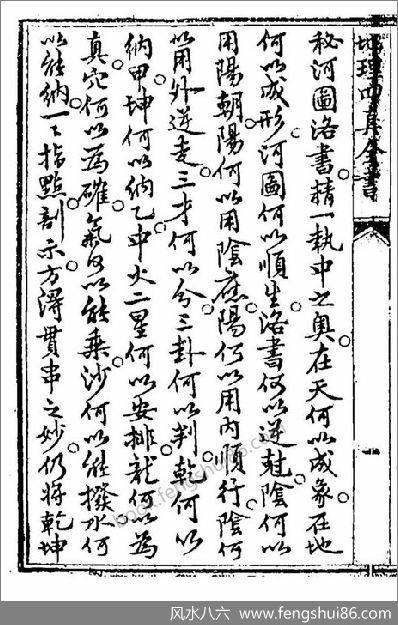 地理四真全書
秘河圖洛書精一執中之奧在天何以成象在地
何以成形河圖何以順生洛書何以逆尅陰何以
用陽朝陽何以用陰應陽何以用內順行陰何
以用外逆走三才何以分三卦何以判乾何以
納甲坤何以納乙中火二星何以安排龍何以為
真穴何以為確氣何以能乘沙何以能撥水何
以能納一一指點剖示方得貫串之妙仍將乾坤
book.fengshui86.com
风水八六 www.fengshui86.com